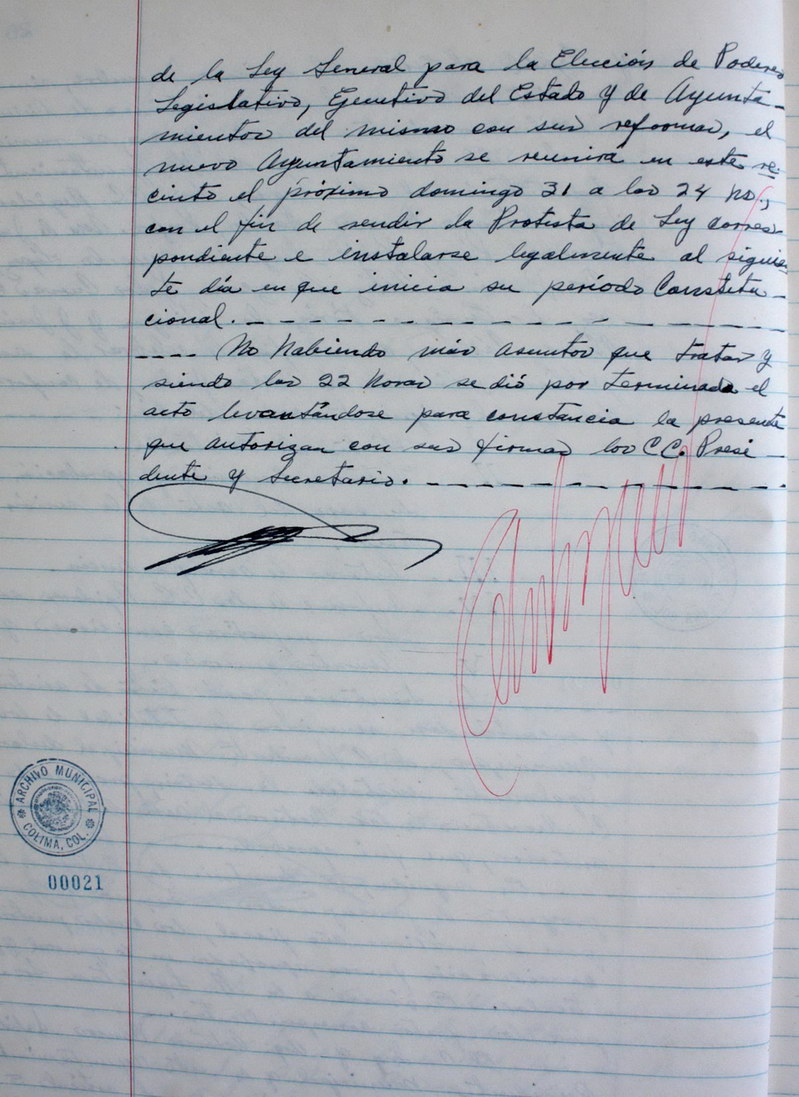 de la Ley General para la Elección de Poderes
Legislativo, Ejecutivo del Estado y de Ayunta-
mientos del mismo con sus reformas, el
nuevo Ayuntamiento se reunirá en este re-
cinto el próximo domingo 31 a las 24 hs.,
con el fin de rendir la Protesta de Ley corres-
pondiente e instalarse legalmente al siguien-
te día en que inicia su período Constitu-
cional. _ _ _ _ _ _ _ _ _ _ _ _
---- No habiendo más asuntos que tratar y
siendo las 22 horas se dió por terminada el
acto levantándose para constancia la presente
que autorizan con sus firmas los CC. Presi-
dente y Secretario. _ _ _ _ _ _ _ _ _
ARCHIVO MUNICIPAL
COLIMA, COL.
00021